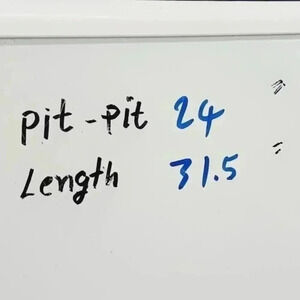 pit - pit 24 "
Length 31.5 "